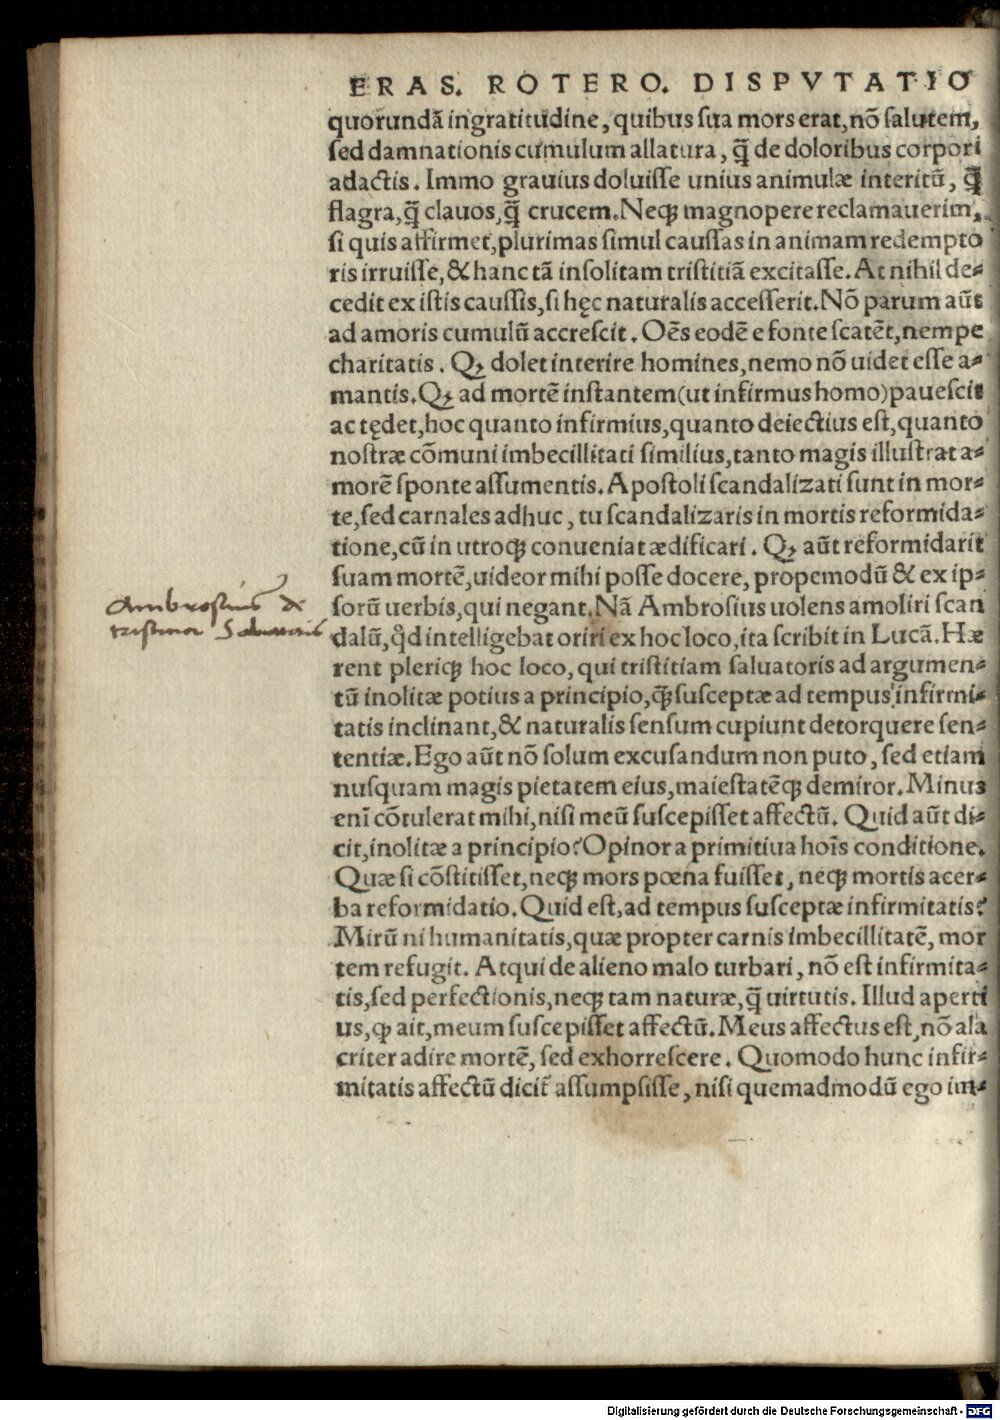 ERAS. ROTERO. DISPVTATIO
quorundã ingratitudine, quibus sua mors erat, nõ salutem,
sed damnationis cumulum allatura, q̃ de doloribus corpori
adactis. Immo grauius doluisse unius animulæ interitũ, q̃
flagra, q̃ clauos, q̃ crucem. Neqꝫ magnopere reclamauerim,
si quis affirmet, plurimas simul caussas in animam redempto
ris irruisse, & hanc tã insolitam tristitiã excitasse. At nihil de⸗
cedit ex istis caussis, si hęc naturalis accesserit. Nõ parum aũt
ad amoris cumulũ accrescit. Oẽs eodẽ e fonte scatẽt, nempe
charitatis. Qꝫ dolet interire homines, nemo nõ uidet esse a⸗
mantis. Qꝫ ad mortẽ instantem (ut infirmus homo) pauescit
ac tędet, hoc quanto infirmius, quanto deiectius est, quanto
nostræ cõmuni imbecillitati similius, tanto magis illustrat a⸗
morẽ sponte assumentis. Apostoli scandalizati sunt in mor⸗
te, sed carnales adhuc, tu scandalizaris in mortis reformida⸗
tione, cũ in utroqꝫ conueniat ædificari. Qꝫ aũt reformidarit
suam mortẽ, uideor mihi posse docere, propemodũ & ex ip⸗
Ambrosius de
sorũ uerbis, qui negant. Nã Ambrosius uolens amoliri scan
tristitia Saluatoris
dalũ, qd̓ intelligebat oriri ex hoc loco, ita scribit in Lucã. Hæ
rent pleriqꝫ hoc loco, qui tristitiam saluatoris ad argumen⸗
tũ inolitæ potius a principio, q̃ꝫ susceptæ ad tempus infirmi⸗
tatis inclinant, & naturalis sensum cupiunt detorquere sen⸗
tentiæ. Ego aũt nõ solum excusandum non puto, sed etiam
nusquam magis pietatem eius, maiestatẽqꝫ demiror. Minus
enĩ cõtulerat mihi, nisi meũ suscepisset affectũ. Quid aũt di⸗
cit, inolitæ a principio? Opinor a primitiua hoĩs conditione.
Quæ si cõstitisset, neqꝫ mors pœna fuisset, neqꝫ mortis acer⸗
ba reformidatio. Quid est, ad tempus susceptæ infirmitatis?
Mirũ ni humanitatis, quæ propter carnis imbecillitatẽ, mor
tem refugit. Atqui de alieno malo turbari, nõ est infirmita⸗
tis, sed perfectionis, neqꝫ tam naturæ, q̃ uirtutis. Illud aperti
us, ꝙ ait, meum suscepisset affectũ. Meus affectus est, nõ ala
criter adire mortẽ, sed exhorrescere. Quomodo hunc infir⸗
mitatis affectũ dicit̃ assumpsisse, nisi quemadmodũ ego im⸗
Digitalisierung gefördert durch die Deutsche Forschungsgemeinschaft - DFG